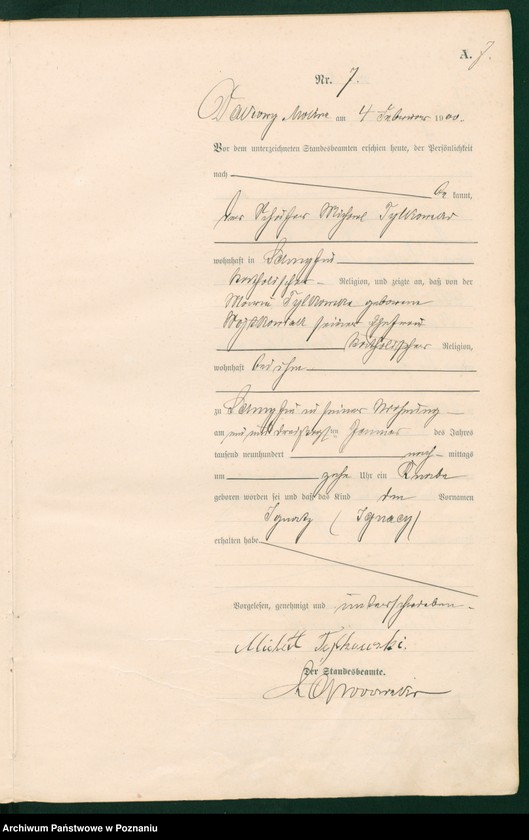 A. 7.
Nr. 7.
Dakowy Mokre am 4 Februar 1900.
Vor dem unterzeichneten Standesbeamten erschien heute, der Persönlichkeit
nach
be kannt,
der Michael
wohnhaft in
katholischer Religion, und zeigte an, daß von der
Maria geborene
seiner Ehefrau
katholischer Religion,
wohnhaft bei ihm
zu in seiner Wohnung
am ein und dreißigsten Januar des Jahres
tausend neunhundert nach mittags
um Uhr ein Knabe
geboren worden sei und daß das Kind den Vornamen
Ignatz (Ignacy)
erhalten habe
Vorgelesen, genehmigt und unterschrieben.
Der Standesbeamte.
Archiwum Państwowe w Poznaniu